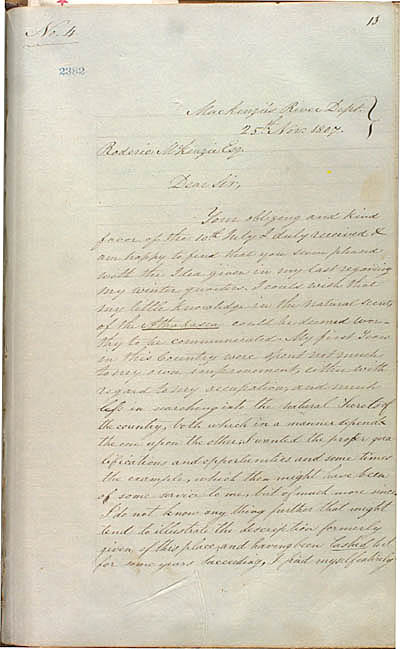 No. 4
13
2382
Mackenzie's River Dept.
25th Nov. 1807.
Roderic McKenzie Esq.
Dear Sir,
Your obliging and kind
favor of the 10th July I duly received &
am happy to find that you seem pleased
with the Idea given in my last regarding
my winter quarters. I could wish that
my little knowledge in the natural
of the Athabasca could be deemed wor-
thy to be communicated. My first Years
in this Country were spent not much
to my own improvement, either with
regard to my occupation, and much
less in searching into the natural
the country, both which in a manner depends
the one upon the other. I wanted the proper qua
lifications and opportunities and some times
the example, which then might have been
of some service to me, but of much more since.
I do not know any thing further that might
tend to illustrate the description formerly
given of this place, and having been
for some years succeeding, I find myself entirely